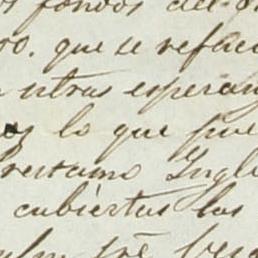 fondos del
que se refac
ntras esperan
lo que fue
restamo Ingl
cubiertas las